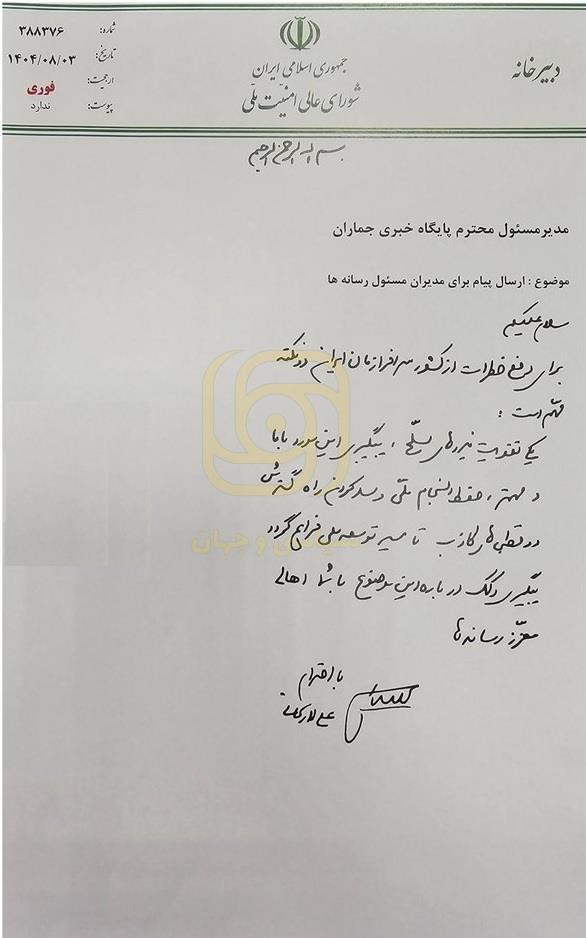 دبیرخانه
جمهوری اسلامی ایران
شورای عالی امنیت ملی
شماره: ۳۸۸۳۷۶
تاریخ: ۱۴۰۴/۰۸/۰۳
ارجحیت: فوری
پیوست: ندارد
بسم الله الرحمن الرحیم
مدیرمسئول محترم پایگاه خبری جماران
موضوع : ارسال پیام برای مدیران مسئول رسانه ها
سلام علیکم
برای رفع خطرات از کشور سرافرازمان ایران دو نکته
مهم است :
یکی تقویت نیروهای مسلّح ، پیگیری این مورد با ما
و مهمتر ، حفظ انسجام ملّی و سد کردن راه گسترش
دوقطبی‌های کاذب تا مسیر توسعه ملی فراهم گردد
پیگیری و کمک درباره این موضوع با شما اهالی
معزّز رسانه‌ها
با احترام
علی لاریجانی
سیاسی و جهان